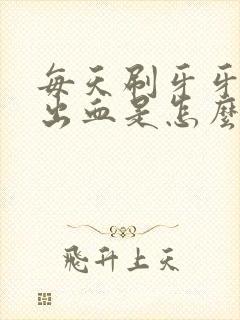 每天刷牙牙
出血是怎麼
飛升上天